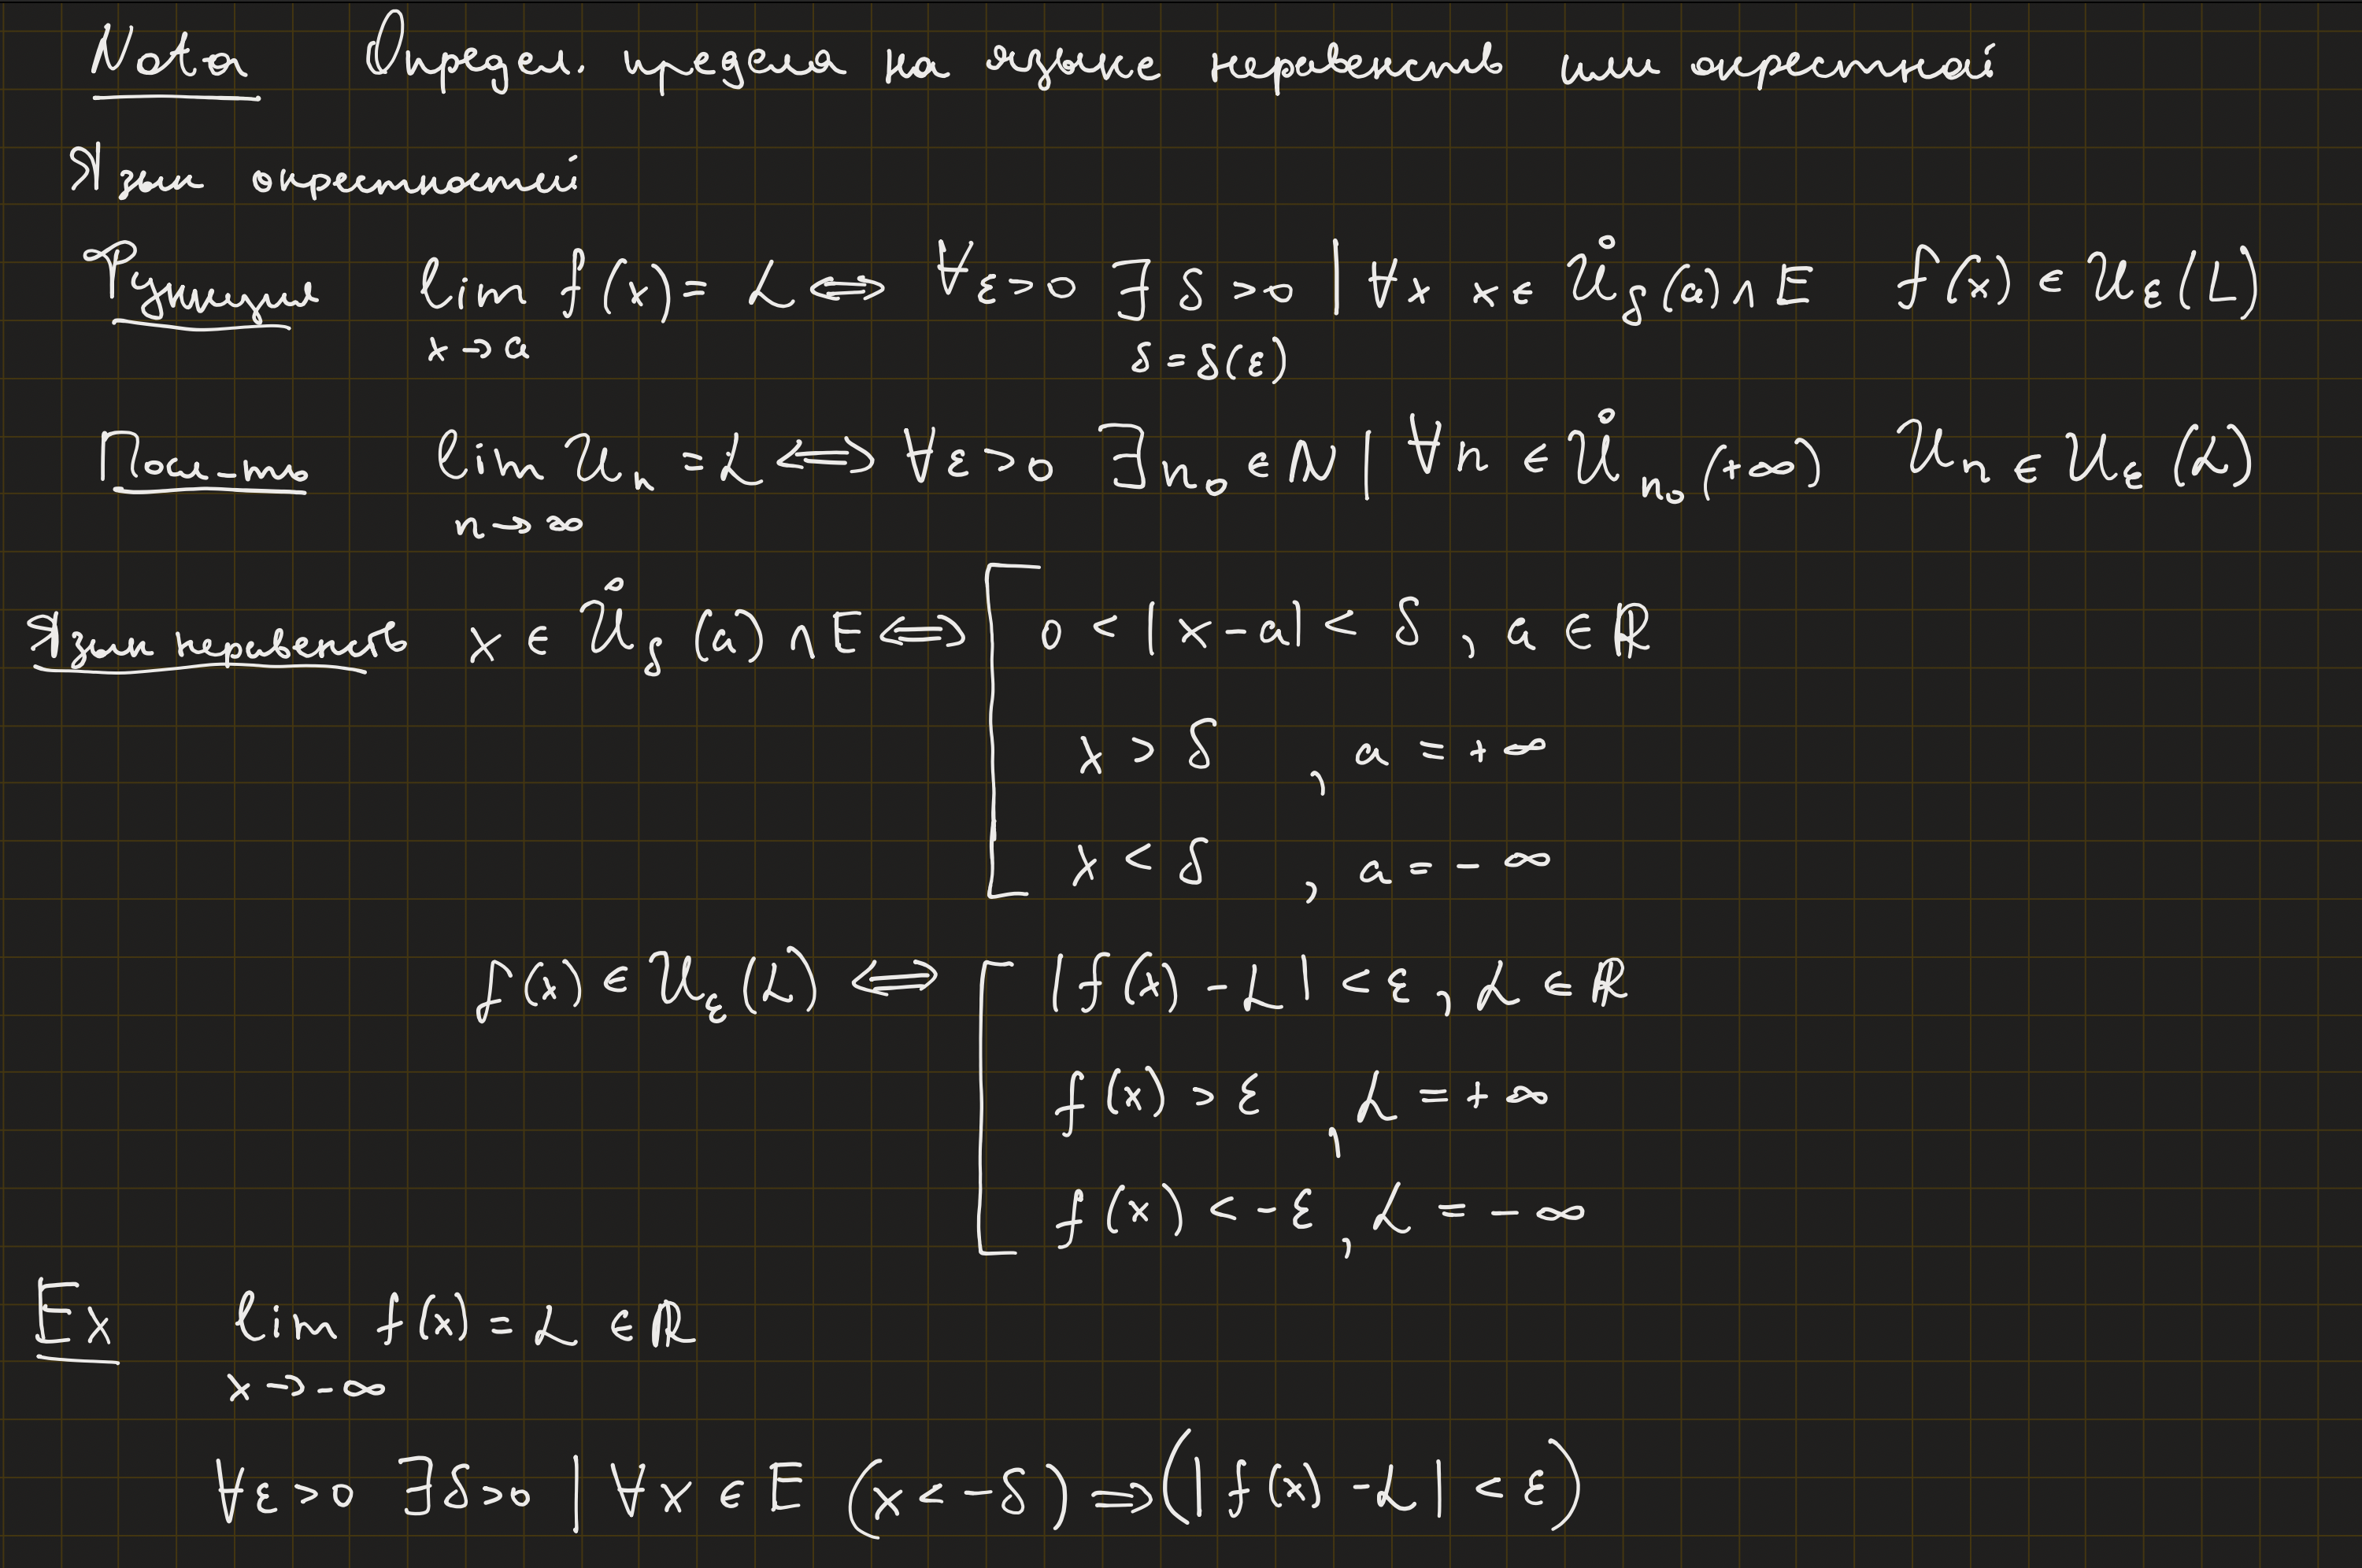 Nota Определ. предела на языке неравенств или окрестной
Язык окрестностей
Функция lim f(x) = L ⟺ ∀ε>0 ∃δ>0 | ∀x x ∈ Ů_δ(a) ∩ E f(x) ∈ U_ε(L)
x→a δ = δ(ε)
Посл-ть lim U_n = L ⟺ ∀ε>0 ∃n₀ ∈ N | ∀n ∈ Ů_n₀(+∞) U_n ∈ U_ε(L)
n→∞
Язык неравенств x ∈ Ů_δ(a) ∩ E ⟺ [ 0 < |x-a| < δ, a ∈ ℝ
x > δ, a = +∞
x < δ, a = -∞
f(x) ∈ U_ε(L) ⟺ [ |f(x) - L| < ε, L ∈ ℝ
f(x) > ε, L = +∞
f(x) < -ε, L = -∞
Ex lim f(x) = L ∈ ℝ
x→-∞
∀ε>0 ∃δ>0 | ∀x ∈ E (x < -δ) ⟹ (|f(x) - L| < ε)